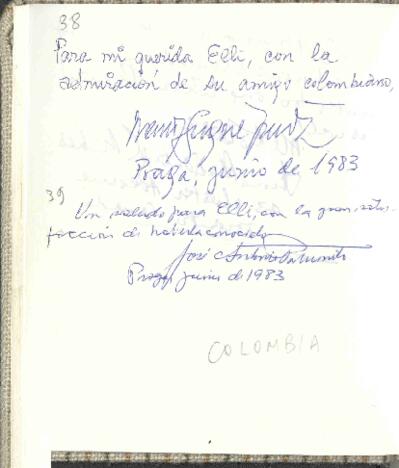 38
Para mi querida Elli, con la
admiración de su amigo colombiano,
Praga, junio de 1983
39
Un saludo para Elli, con la gran satis-
facción de haberla conocido
José Antonio
Praga junio di 1983
COLOMBIA